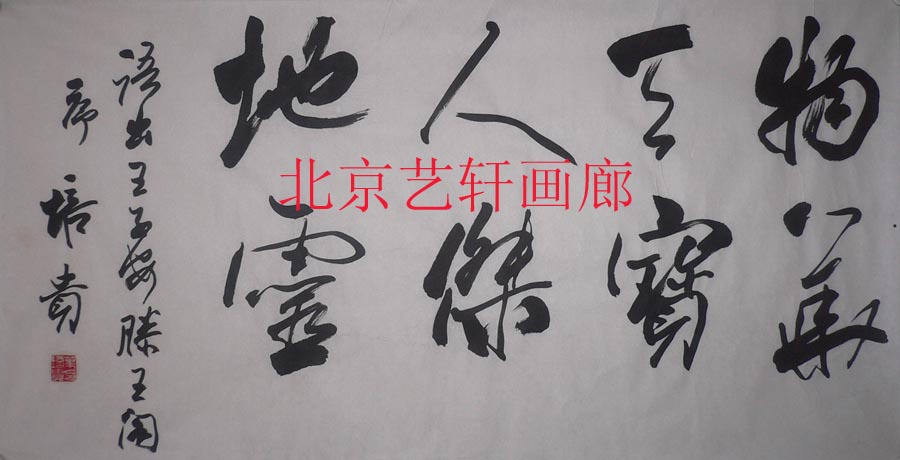 物華
天寶
人傑
地靈
語出王子安滕王閣
序 培貴
北京艺轩画廊